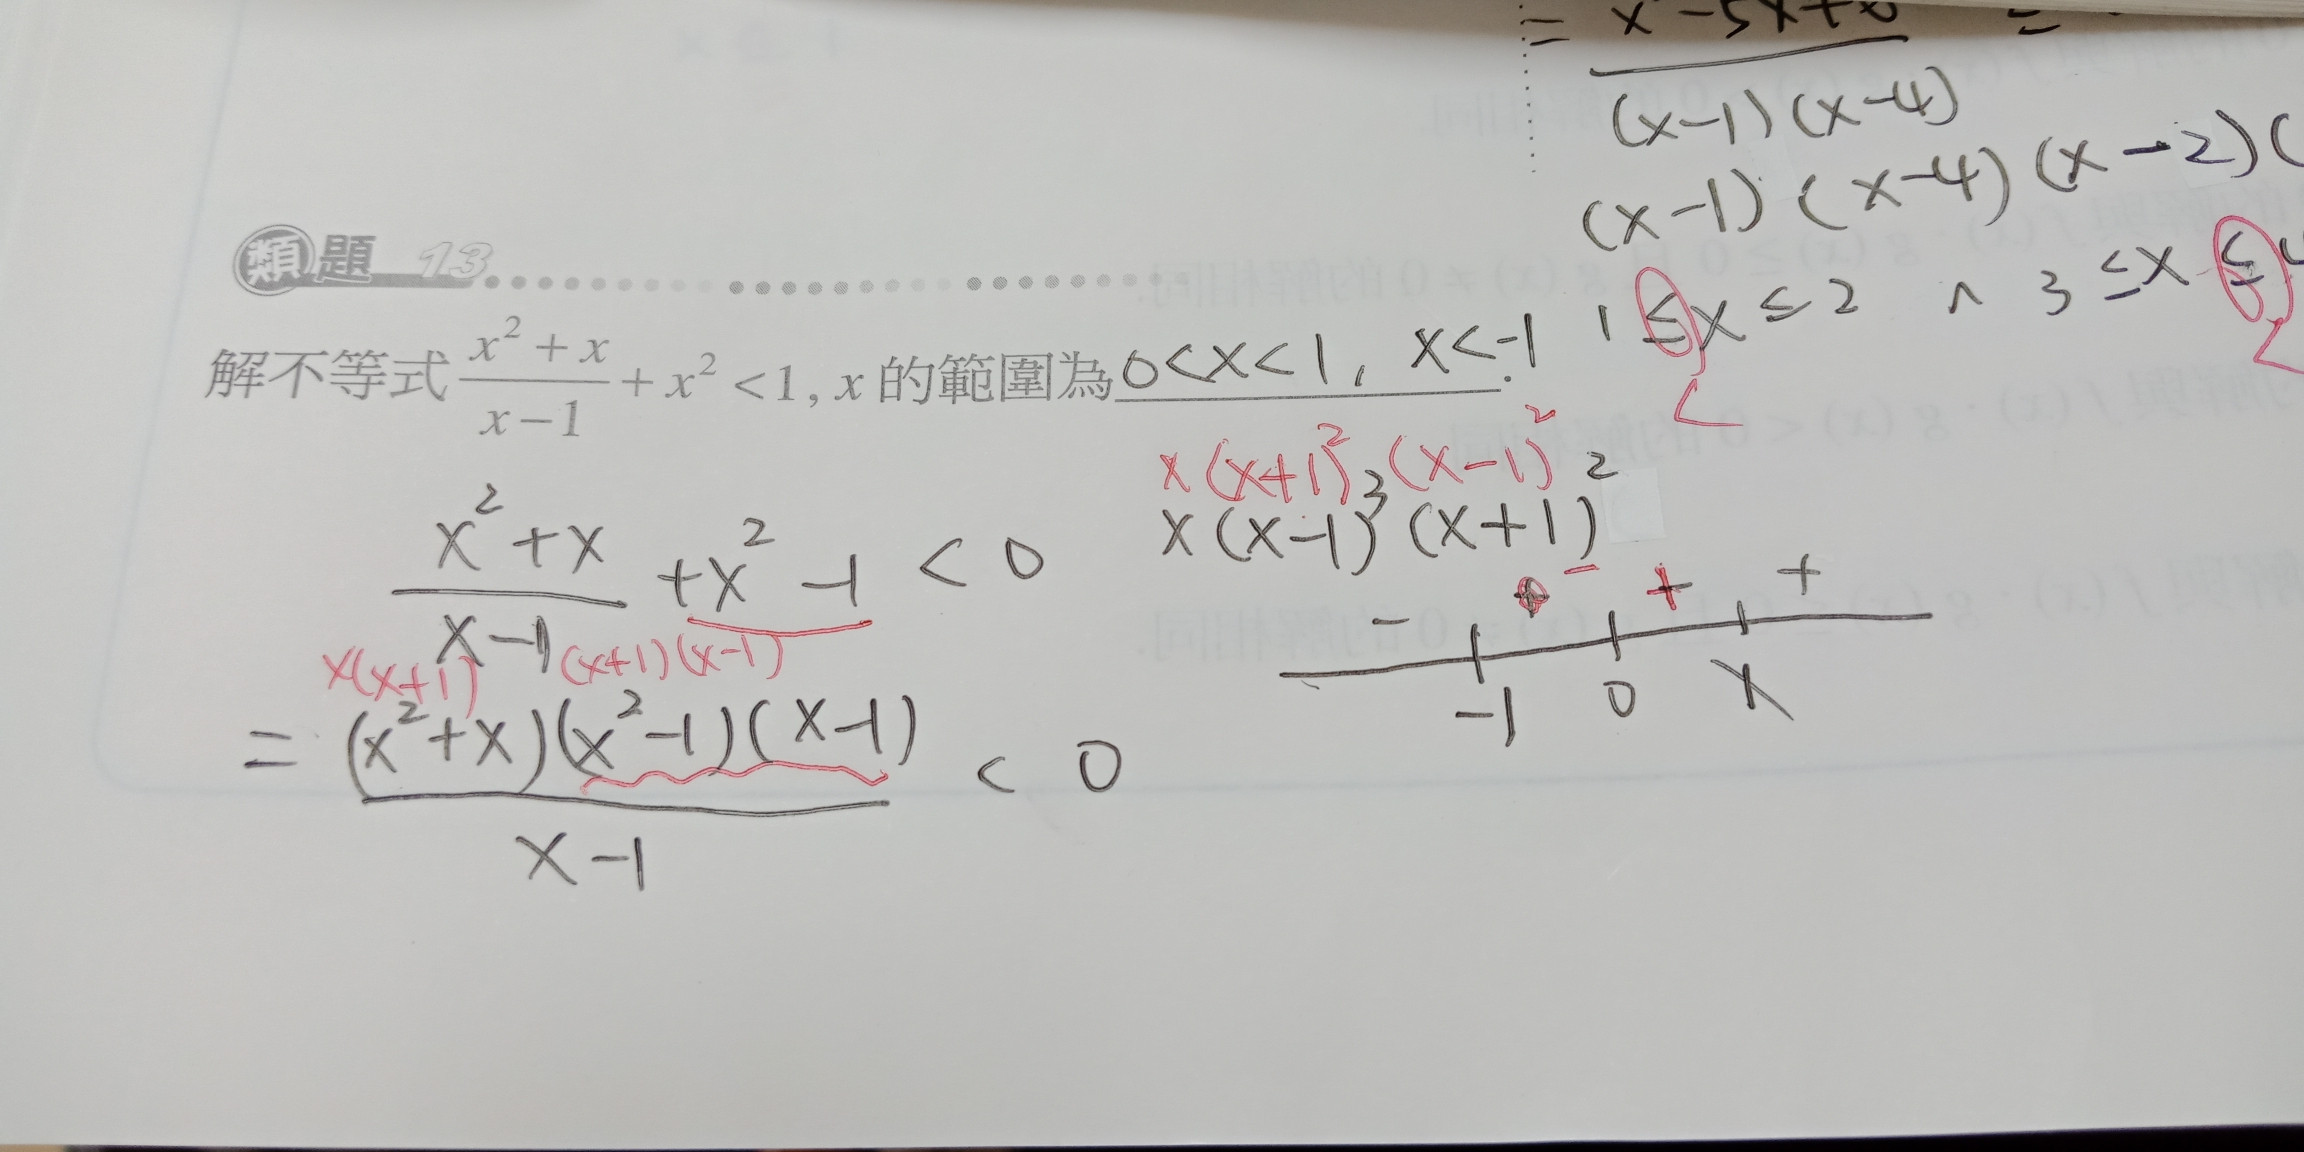 = x²-5x+6
(x-1)(x-4)
(x-1)(x-4)(x-2)(
1≤x≤2 ∧ 3≤x≤4
< <
類題 13
解不等式 \frac{x²+x}{x-1}+x²<1, x 的範圍為 0<x<1, x<-1.
x(x+1)²(x-1)²
x(x-1)³(x+1)²
\frac{x²+x}{x-1}+x²-1<0
- - + +
-1 0 1
x(x+1) (x+1)(x-1)
= \frac{(x²+x)(x²-1)(x-1)}{x-1}<0